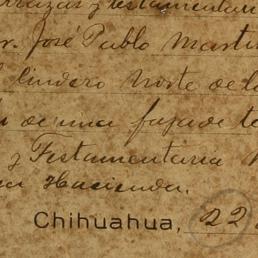 y testamentari
r. José Pablo Marti
lindero Norte de l
de una faja de te
y Testamentaria
Hacienda.
Chihuahua, 22